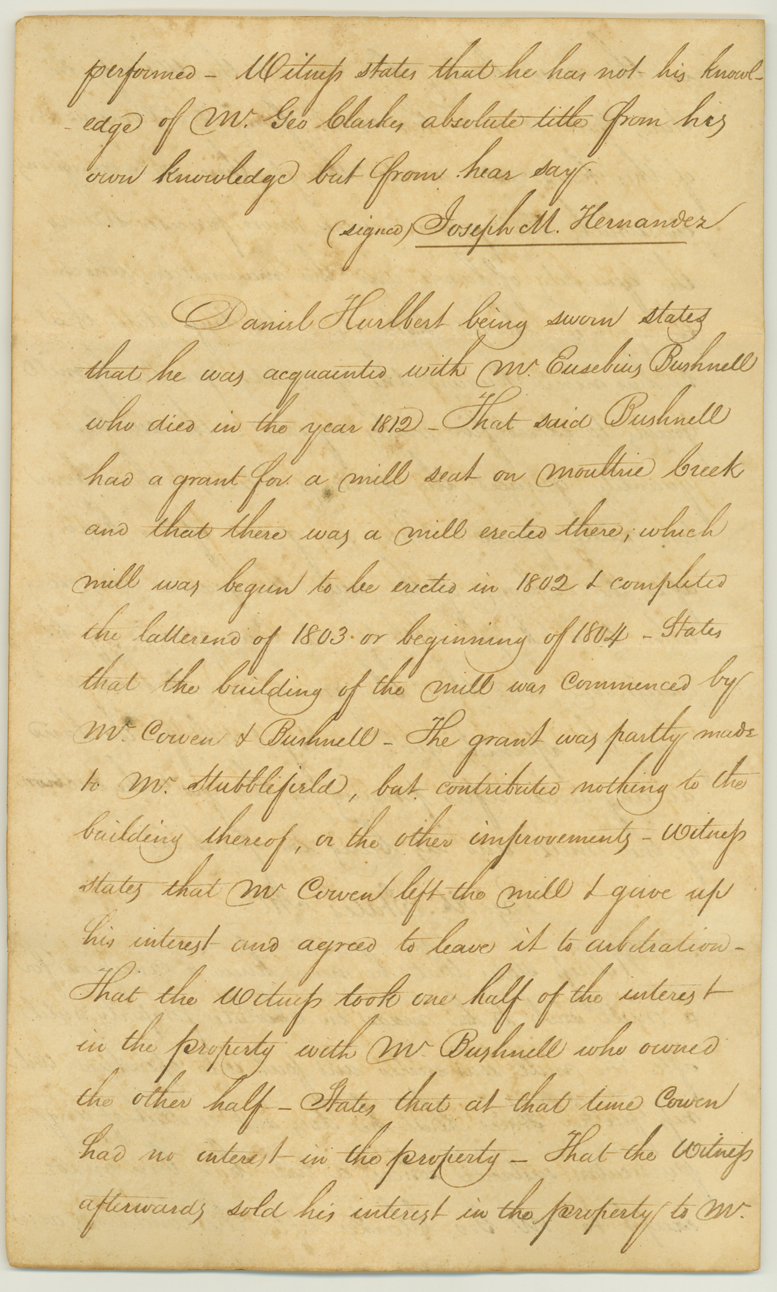 performed - Witness states that he has not his knowl-
edge of Mr. Geo Clarkes absolute title from his
own knowledge but from hear say.
(signed) Joseph M. Hernandez
Daniel Hurlbert being sworn states
that he was acquainted with Mr. Eusebius Bushnell
who died in the year 1812 - That said Bushnell
had a grant for a mill seat on Moultrie Creek
and that there was a mill erected there, which
mill was begun to be erected in 1802 & completed
the latter end of 1803 or beginning of 1804 - States
that the building of the mill was commenced by
Mr. Cowen & Bushnell - The grant was partly made
to Mr. Stubblefield, but contributed nothing to the
building thereof, or the other improvements - Witness
states that Mr Cowen left the mill & gave up
his interest and agreed to leave it to arbitration -
That the Witness took one half of the interest
in the property with Mr Bushnell who owned
the other half - States that at that time Cowen
had no interest in the property - That the Witness
afterwards sold his interest in the property to Mr.